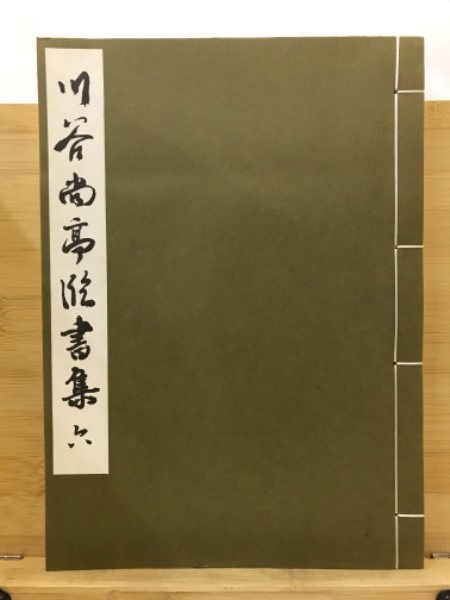 川谷尚亭臨書集 六